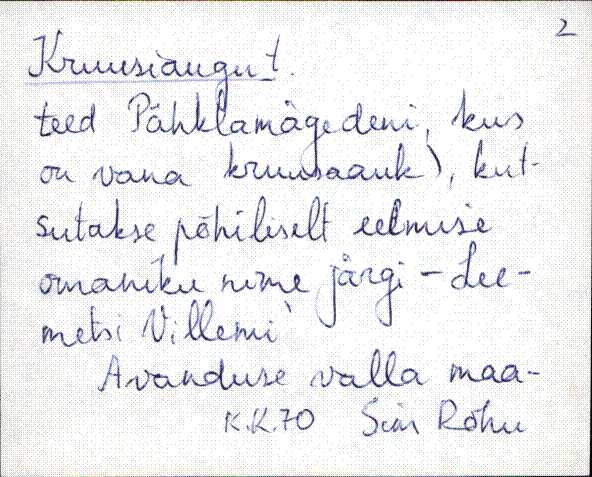 2
Kruusiaugu t.
teed Pähklamägedeni, kus
on vana kruusaauk), kut-
sutakse põhiliselt eelmise
omaniku nime järgi - Lee-
metsi Villemi
Avanduse valla maa-
K.K.70 Siim Rõhu